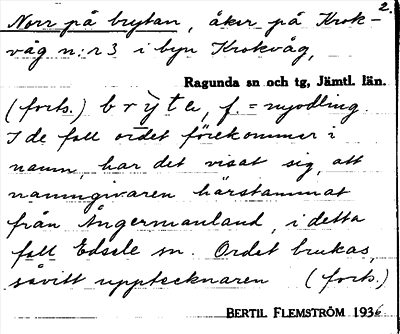 2.
Norr på brytan, åker på Krok-
våg n:r 3 i byn Krokvåg,
Ragunda sn och tg, Jämtl. län.
(forts.) brỳta, f. = nyodling.
I de fall ordet förekommer i
namn, har det visat sig, att
namngivaren härstammat
från Ångermanland, i detta
fall Edsele sn. Ordet brukas,
såvitt upptecknaren (forts.)
BERTIL FLEMSTRÖM 1936